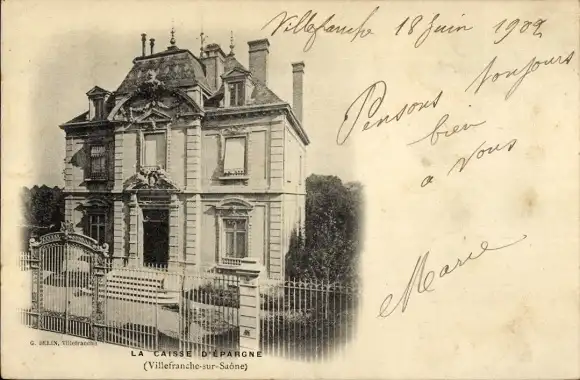 Villefranche 18 Juin 1902
Pensons toujours
bien
a vous
Marie
G. DELIN, Villefranche
LA CAISSE D'ÉPARGNE
(Villefranche-sur-Saône)